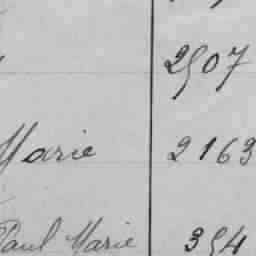 2507
Marie 2163
Paul Marie 354